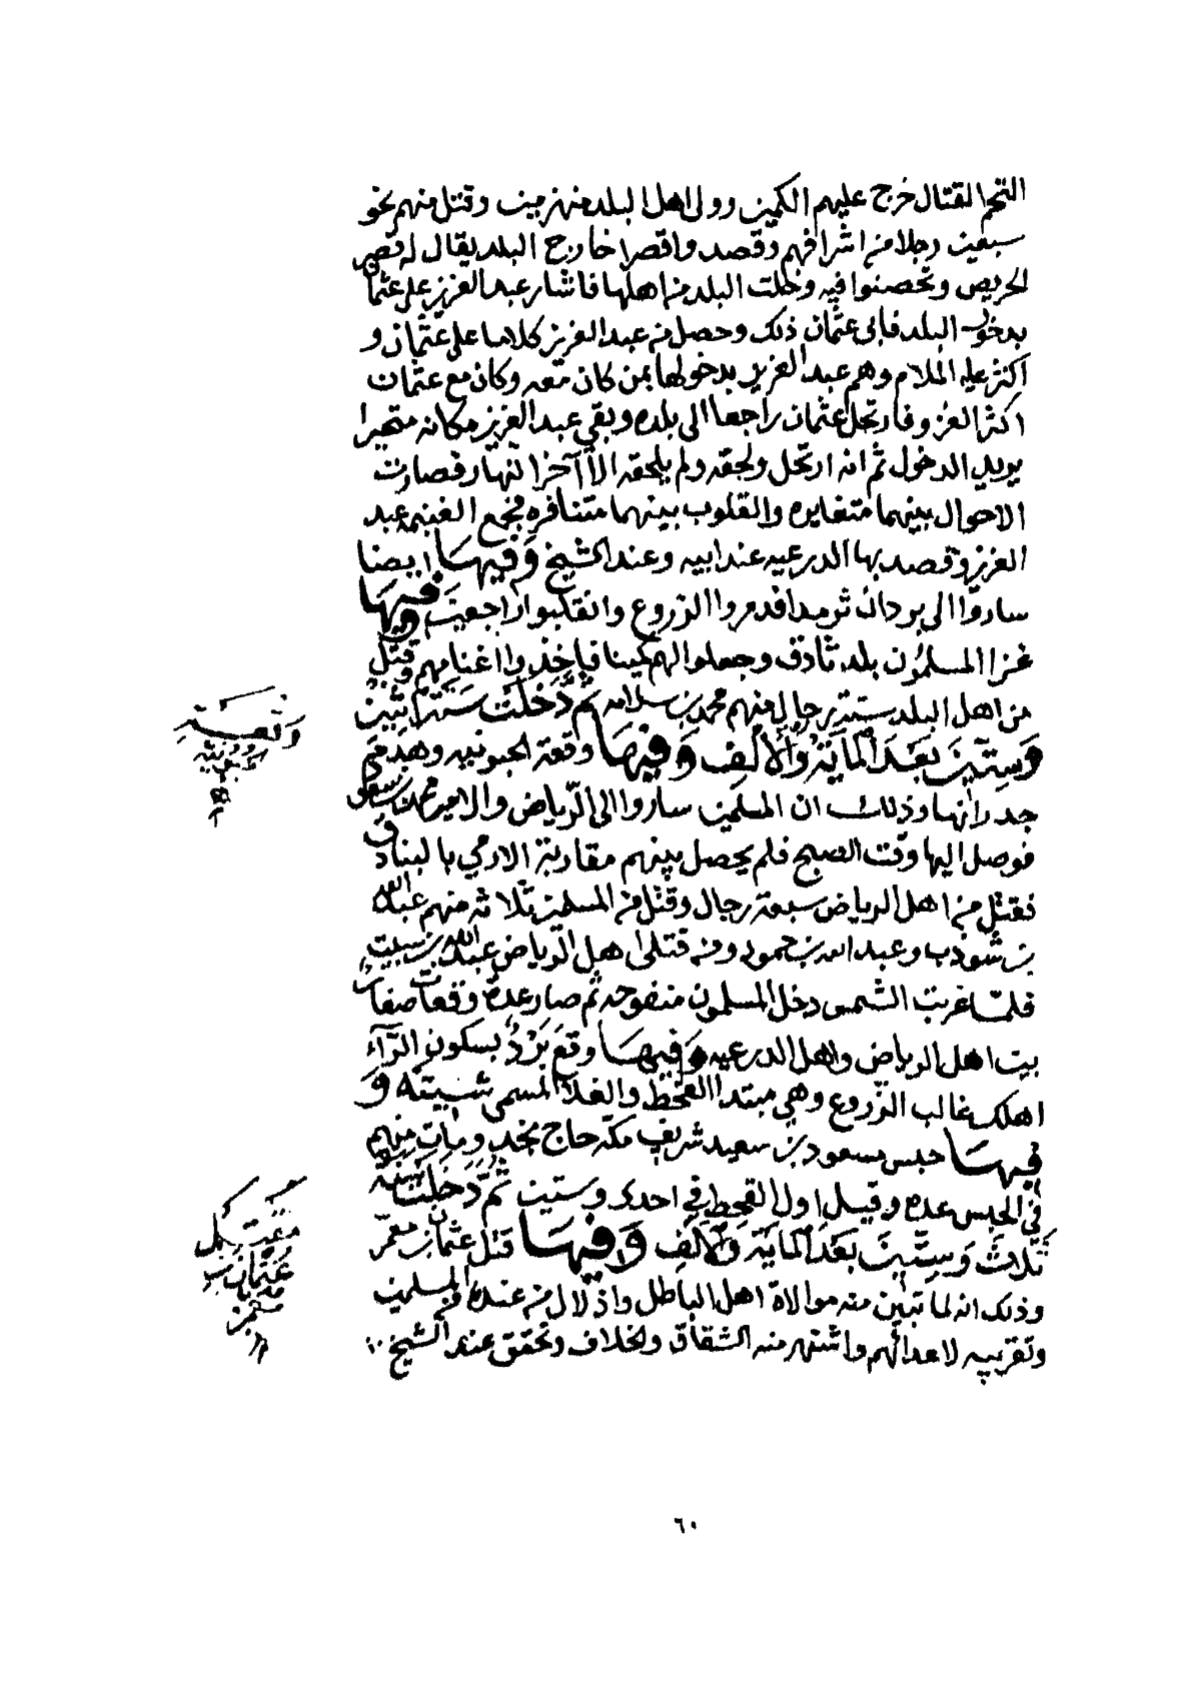 التحم القتال خرج عليهم الكمين وولى اهل البلد منهزمين وقتل منهم نحو
سبعين رجلا من اشرافهم وقصدوا قصرا خارج البلد يقال له قصر
الحريص وتحصنوا فيه وخلت البلد من اهلها فاشار عبد العزيز على عثمان
بدخول البلد فابى عثمان ذلك وحصل من عبد العزيز كلاما على عثمان و
اكثر عليه الملام وهم عبد العزيز بدخولها بمن كان معه وكان مع عثمان
اكثر الغزو فارتحل عثمان راجعا الى بلده وبقي عبد العزيز مكانه متحيرا
يريد الدخول ثم انه ارتحل ولحقه ولم يلحقه الا آخر النهار فصارت
الاحوال بينهما متغايره والقلوب بينهما متنافره فجمع الغنيمة عبد
العزيز وقصد بها الدرعيه عند ابيه وعند الشيخ وَفيهَا ايضا
ساروا الى بوحان ثرمدا فدمروا الزروع وانقلبوا راجعين وفيهَا
غزا المسلمون بلد ثادق وجعلوا لهم كمينا فاخذوا اغنامهم وقتل
من اهل البلد ستة رجال منهم محمد بن سلامه ثم دَخلَت سَنة اثنين
وَستين بَعدَ المايَة وَالألف وَفيهَا وقعة الحبونيه وهدم
جدرانها وذلك ان المسلمين ساروا الى الرياض والامير محمد بن سعود
فوصل اليها وقت الصبح فلم يحصل بينهم مقاربة الا رمي بالبنادق
فقتل من اهل الرياض سبعة رجال وقتل من المسلمين ثلاثه منهم عبدالله
بن شوذب وعبد الله بن حمود ومن قتلى اهل الرياض عبدالله بن سبيت
فلما غربت الشمس دخل المسلمون منفوحه ثم صار عدة وقعات صفات
بين اهل الرياض واهل الدرعيه وَفيهَا وقع بَرْدُ بسكون الرآء
اهلك غالب الزروع وهي مبتدا القحط والغلا المسمى شيته وَ
فيهَا حبس مسعود بن سعيد شريف مكة حاج نجد ومات منهم
في الحبس عده وقيل اول القحط في احدى وستين ثمَّ دَخلَت سنة
ثلاثَ وَستّينَ بَعدَ المايَة وَالألفِ وَفيهَا قتل عثمان بن معمر
وذلك انه لما تبين منه موالاة اهل الباطل واذلال من عنده من المسلمين
وتقريبه لاعدائهم واشتهر منه الشقاق والخلاف وتحقق عند الشيخ
وقعة
الحبونيه
مقتل
عثمان بن
معمر
٦٠